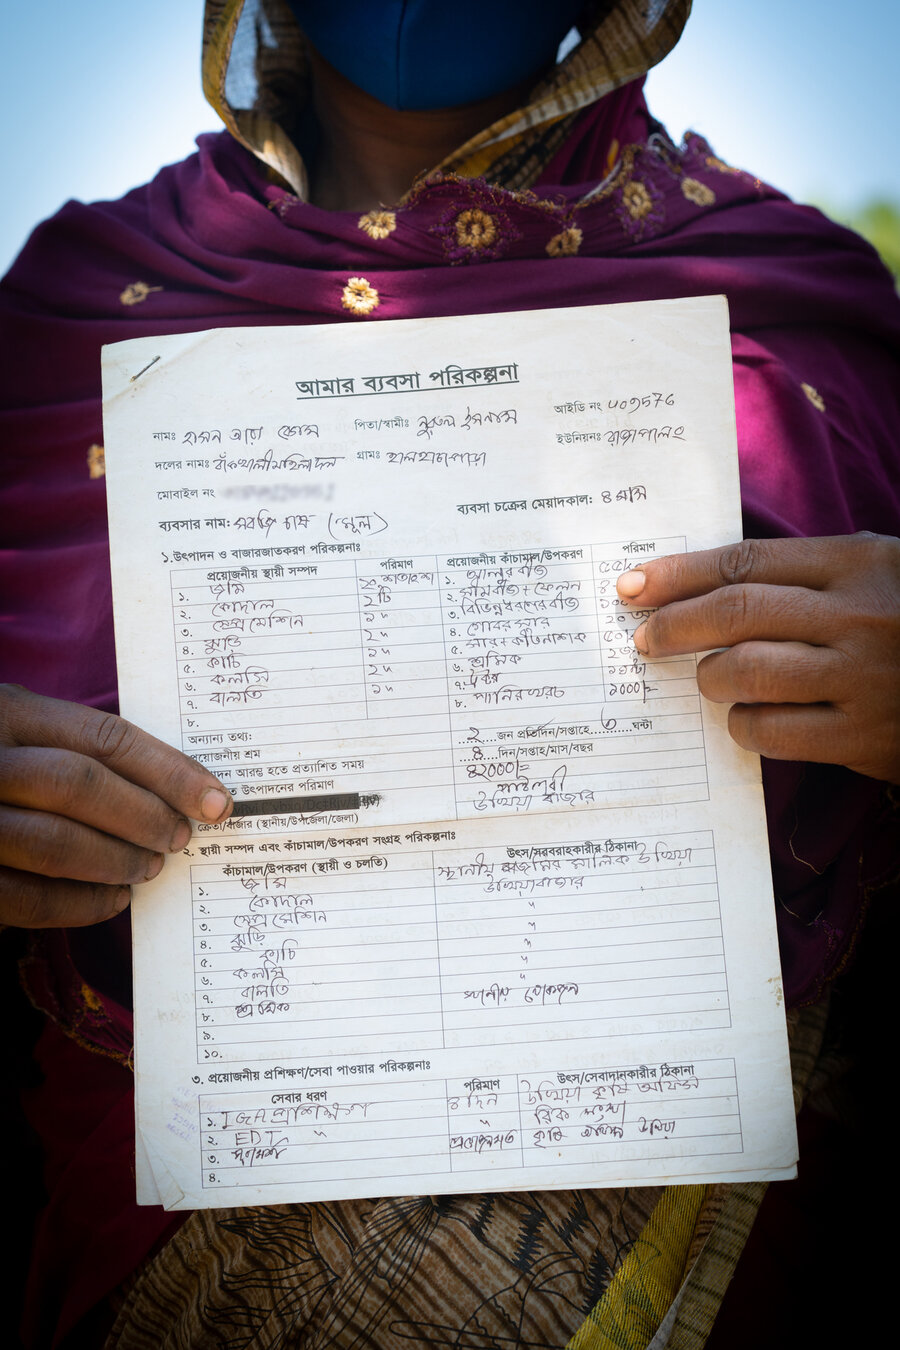 আমার ব্যবসা পরিকল্পনা
নামঃ হাসন আরা বেগম পিতা/স্বামীঃ নুরুল ইসলাম আইডি নং
দলের নামঃ বাঁকখালী মহিলা দল গ্রামঃ ইউনিয়নঃ রাজাপালং
মোবাইল নং
ব্যবসার নাম: সবজি চাষ (মূল) ব্যবসা চক্রের মেয়াদকাল: ৪ মাস
১. উৎপাদন ও বাজারজাতকরণ পরিকল্পনাঃ
প্রয়োজনীয় স্থায়ী সম্পদ পরিমাণ প্রয়োজনীয় কাঁচামাল/উপকরণ পরিমাণ
১. জমি ২০ শতাংশ ১. আলুর বীজ
২. কোদাল ২টি ২. সীমবীজ + ফেলন
৩. স্প্রে মেশিন ১" ৩. বিভিন্ন ধরনের বীজ
৪. ঝুড়ি ২" ৪. গোবর সার
৫. কাচি ২" ৫. সার + কীটনাশক
৬. কলসি ২" ৬. শ্রমিক
৭. বালতি ১" ৭.
৮. ৮. পানির খরচ ১০০০/=
অন্যান্য তথ্য:
প্রয়োজনীয় শ্রম ২ জন প্রতিদিন/সপ্তাহে ৩ ঘণ্টা
দন আরম্ভ হতে প্রত্যাশিত সময় ৪ দিন/সপ্তাহ/মাস/বছর
ত উৎপাদনের পরিমাণ ৪২০০০/=
ক্রেতা/বাজার (স্থানীয়/উপজেলা/জেলা) পাইকারী উখিয়া বাজার
২. স্থায়ী সম্পদ এবং কাঁচামাল/উপকরণ সংগ্রহ পরিকল্পনাঃ
কাঁচামাল/উপকরণ (স্থায়ী ও চলতি) উৎস/সরবরাহকারীর ঠিকানা
১. জমি স্থানীয় জমির মালিক উখিয়া
২. কোদাল উখিয়া বাজার
৩. স্প্রে মেশিন "
৪. ঝুড়ি "
৫. কাচি "
৬. কলসি "
৭. বালতি "
৮. শ্রমিক স্থানীয় লোকজন
৯.
১০.
৩. প্রয়োজনীয় প্রশিক্ষণ/সেবা পাওয়ার পরিকল্পনাঃ
সেবার ধরণ পরিমাণ উৎস/সেবাদানকারীর ঠিকানা
১. IGA প্রশিক্ষণ ৪ দিন উখিয়া কৃষি অফিস
২. EDT " " রিক সংস্থা
৩. পরামর্শ প্রয়োজনমত কৃষি অফিস উখিয়া
৪.